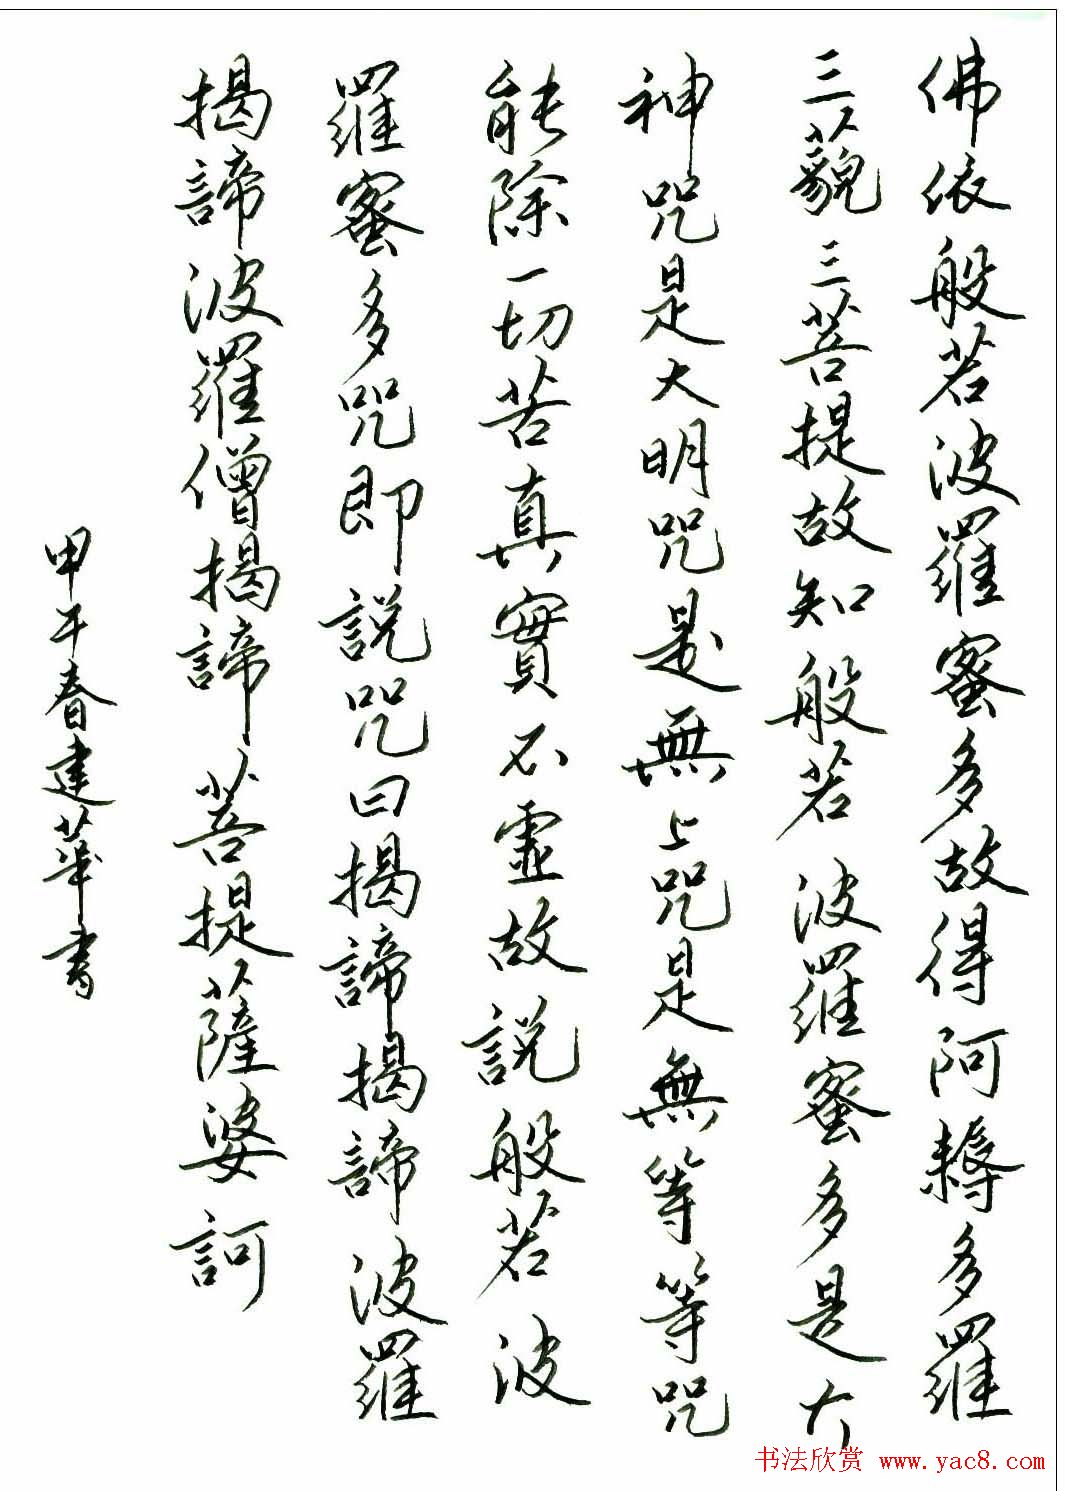 佛依般若波羅蜜多故得阿耨多羅
三藐三菩提故知般若波羅蜜多是大
神咒是大明咒是無上咒是無等等咒
能除一切苦真實不虛故說般若波
羅蜜多咒即說咒曰揭諦揭諦波羅
揭諦波羅僧揭諦菩提薩婆訶
甲午春建華書
书法欣赏 www.yac8.com